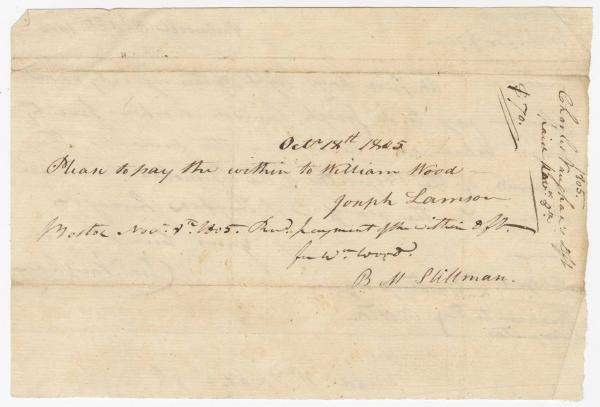 Octr 18th 1805
Please to pay the within to William Wood
Joseph Lamson
Boston Nov. 8th 1805. Recd. payment of the within dft.
for Wm Wood.
B M Stillman.
1805.
Charles Vaughan's dft
Paid Novr 8th
$70.